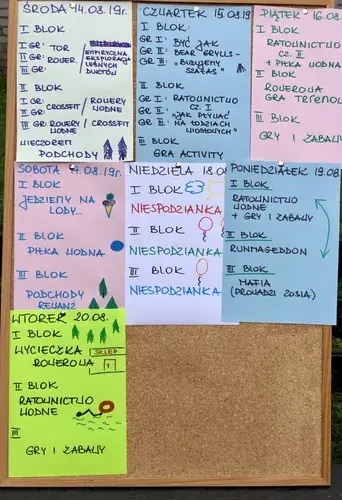 ŚRODA 14.08.19r.
I BLOK
I GR: TOR
II GR: ROWER.
III GR:
EMPIRYCZNA
EKSPLORACJA
LEŚNYCH
DUKTÓW
II BLOK
I GR: CROSSFIT / ROWERY WODNE
II GR:
III GR: ROWERY WODNE / CROSSFIT
WIECZOREM
PODCHODY
CZWARTEK 15.08.19
I BLOK:
GR I: BYĆ JAK
GR II: BEAR GRYLLS -
GR III: "BUDUJEMY
SZAŁAS"
II BLOK
GR I: RATOWNICTWO
GR II: CZ. I
GR III: "JAK PŁYWAĆ
NA ŁODZIACH
WIOSŁOWYCH"
III BLOK
GRA ACTIVITY
PIĄTEK 16.08
I BLOK
RATOWNICTWO
CZ. II
+ PIŁKA WODNA
II BLOK
ROWEROWA
GRA TERENOW
III BLOK
GRY I ZABAWY
SOBOTA 17.08.19r.
I BLOK
JEDZIEMY NA
LODY...
II BLOK
PIŁKA WODNA
III BLOK
PODCHODY
REWANŻ
NIEDZIELA 18.0
I BLOK
NIESPODZIANKA
II BLOK
NIESPODZIANKA
III BLOK
NIESPODZIANKA
PONIEDZIAŁEK 19.08
I BLOK
RATOWNICTWO
WODNE
+ GRY I ZABAWY
II BLOK
RUNMAGEDDON
III BLOK
MAFIA
(PROWADZI ZOSIA)
WTOREK 20.08.
I BLOK
WYCIECZKA
ROWEROWA
SKLEP
II BLOK
RATOWNICTWO
WODNE
III
GRY I ZABAWY